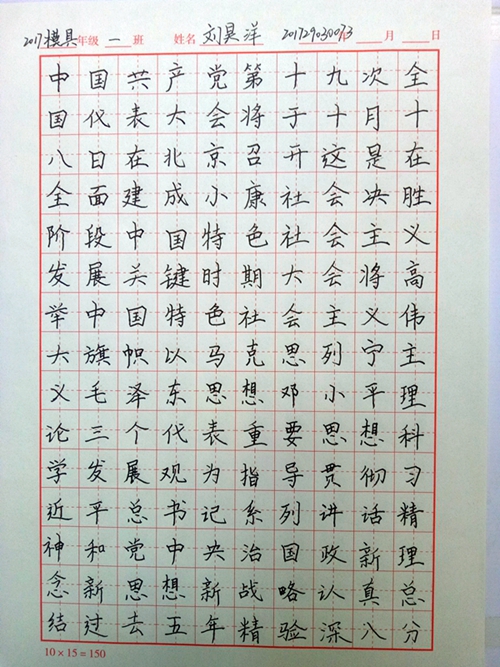 2017模具年级 一 班 姓名 刘昊洋 201729030073年 月 日
中国共产党第十九次全
国代表大会将于十月十
八日在北京召开这是在
全面建成小康社会决胜
阶段中国特色社会主义
发展关键时期大会将高
举中国特色社会主义伟
大旗帜以马克思列宁主
义毛泽东思想邓小平理
论三个代表重要思想科
学发展观为指导贯彻习
近平总书记系列讲话精
神和党中央治国政新理
念新思想新战略认真总
结过去五年精验深八分
10×15=150